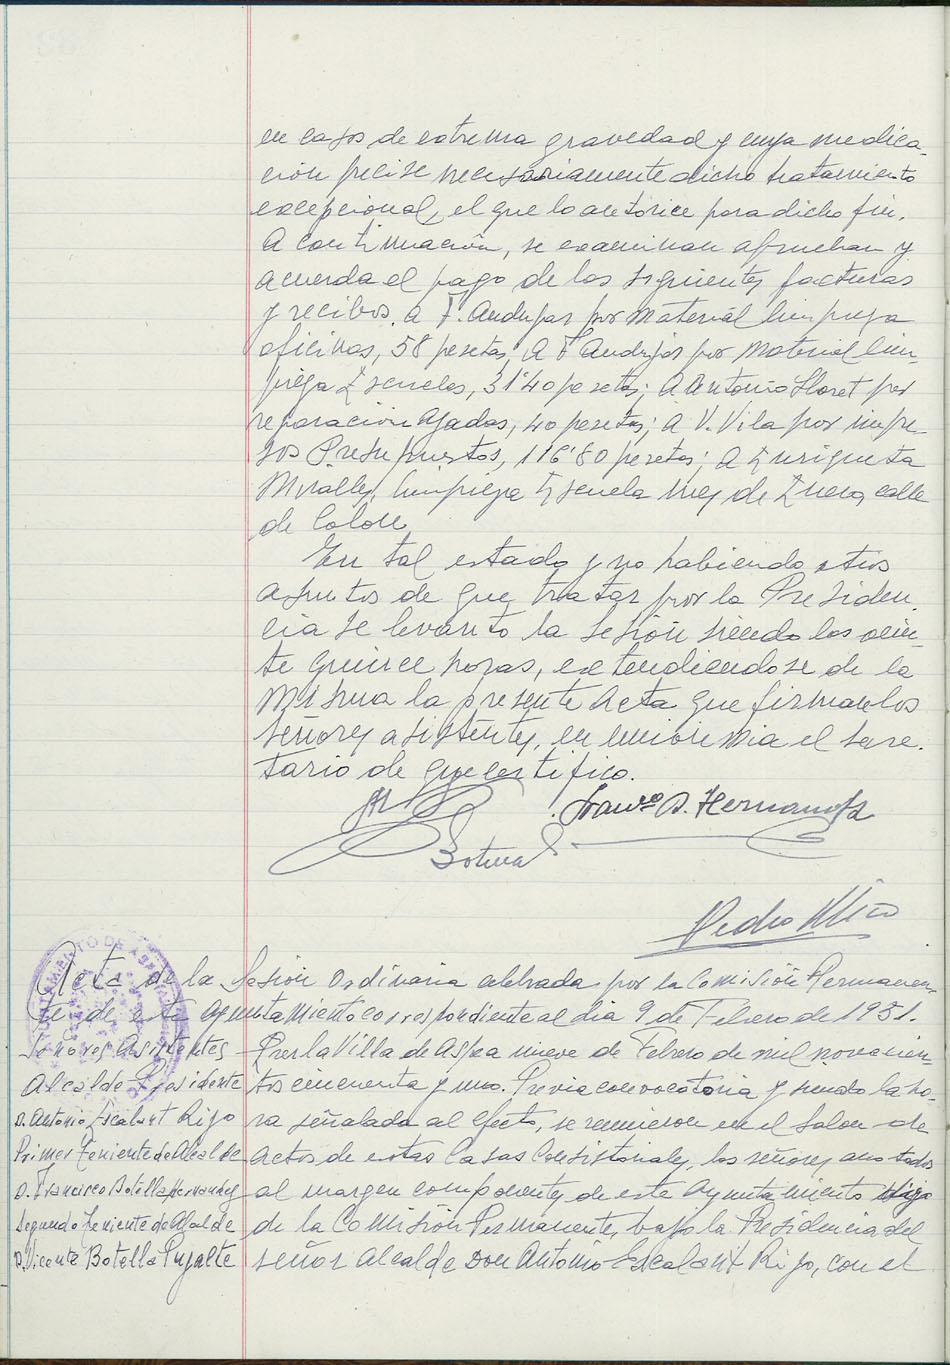 en casos de extrema gravedad y cuya medica-
ción precise necesariamente dicho tratamiento
excepcional, el que lo autorice para dicho fin.
A continuación, se examinan aprueban y
acuerda el pago de los siguientes facturas
y recibos. a F. Andujar por Material limpieza
oficinas, 58 pesetas; A F. Andujar por Material lim-
pieza Escuelas, 31'40 pesetas; A Antonio Lloret por
reparación Azadas, 40 pesetas; a V. Vila por impre-
sos Presupuestos, 116'80 pesetas; a Enriqueta
Miralles, limpieza Escuela mes de Enero, calle
de Colon.
En tal estado y no habiendo otros
asuntos de que tratar por la Presiden-
cia se levantó la sesión siendo las vein-
te quince horas, extendiendose de la
misma la presente Acta que firman los
señores asistentes, en
el Secre-
tario de que certifico.
Botella
Franco B. Hernandez
Pedro Mico
Acta de la Sesión Ordinaria celebrada por la Comisión Permanen-
te de este Ayuntamiento correspondiente al dia 9 de Febrero de 1951.
Señores Asistentes
Alcalde Presidente
D. Antonio Escalant Rizo
Primer Teniente de Alcalde
D. Francisco Botella Hernandez
Segundo Teniente de Alcalde
D. Vicente Botella Pujalte
En la Villa de Aspe a nueve de Febrero de mil novecien-
tos cincuenta y uno. Previa convocatoria y siendo la ho-
ra señalada al efecto, se reunieron en el Salon de
Actos de estas Casas Consistoriales, los señores anotados
al margen componentes de este Ayuntamiento digo
de la Comisión Permanente, bajo la Presidencia del
señor Alcalde Don Antonio Escalant Rizo, con el